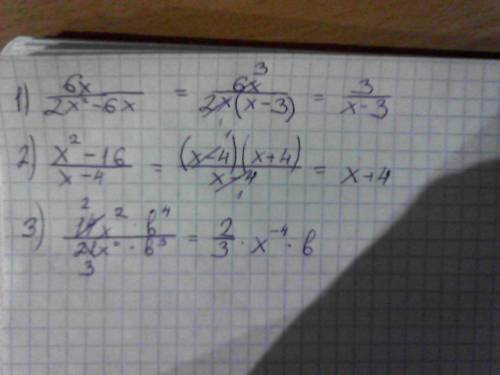 1) 6x / 2x² - 6x = 6x 3 / 2x(x-3) 1 = 3 / x-3
2) x² - 16 / x - 4 = (x-4)(x+4) 1 / x-4 1 = x+4
3) 14x² · b⁴ 2 / 21x · b³ 3 = 2/3 · x⁻⁴ · b